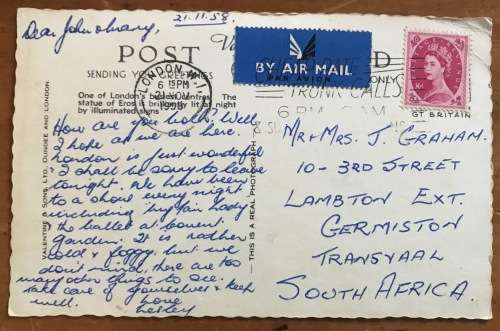 21.11.58
Dear John & Mary,
POST
SENDING YOU GREETINGS
One of London's Centres. The
statue of Eros brilliantly lit at night
by illuminated signs
LONDON. W.1
6 15 PM
21 NOV
1958
BY AIR MAIL
PAR AVION
ONLY
TRUNK CALLS
6 PM
GT BRITAIN
How are you both? Well
I hope as we are here.
London is just wonderful
I shall be sorry to leave
tonight. We have been
to a show every night
including My Fair Lady
& the ballet at Covent
Garden. It is rather
cold & foggy but we
don't mind, there are too
many other things to see.
Take care of yourselves & keep
well. Love
Lesley
VALENTINE & SONS, LTD., DUNDEE AND LONDON
THIS IS A REAL PHOTOGRAPH
Mr & Mrs. J. GRAHAM.
10 - 3RD STREET
LAMBTON EXT.
GERMISTON
TRANSVAAL
SOUTH AFRICA.